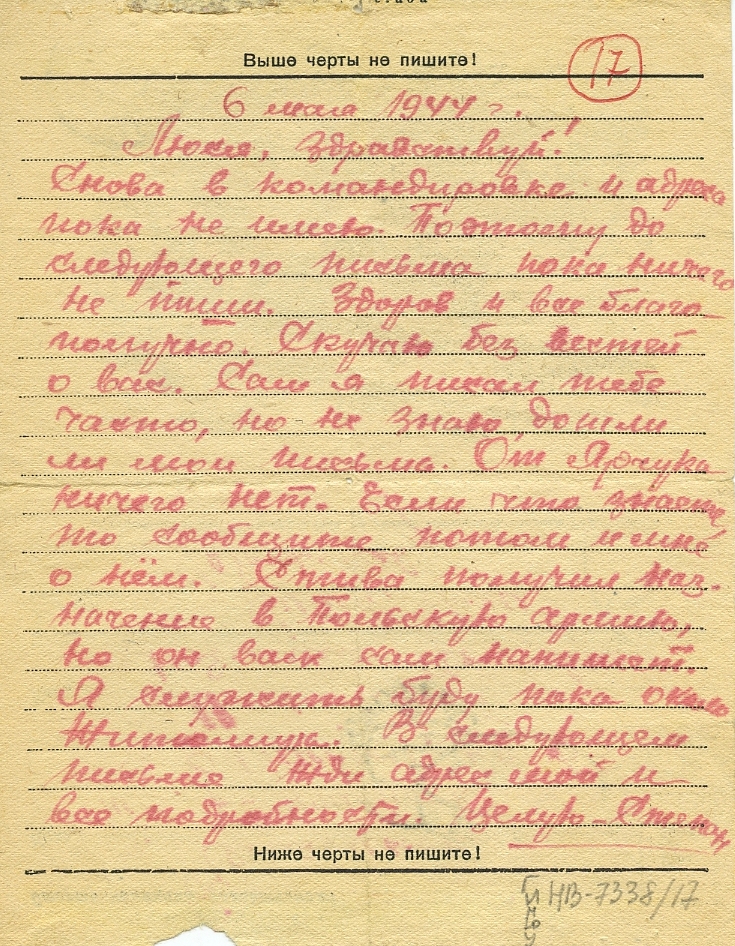 Выше черты не пишите!
17
6 мая 1944 г.
Люся, здравствуй!
Снова в командировке и адреса
пока не имею. Поэтому до
следующего письма пока ничего
не пиши. Здоров и все благо
получно. Скучаю без вестей
о вас. Сам я писал тебе
часто, но не знаю, дошли
ли мои письма. От Ярчука
ничего нет. Если что знаете,
то сообщите потом и мне
о нём. Стива получил наз-
начение в Польскую армию,
но он вам сам напишет.
Я служить буду пока около
Житомира. В следующем
письме жди адрес мой и
все подробности. Целую - Степан
Ниже черты не пишите!
НВ-7338/17